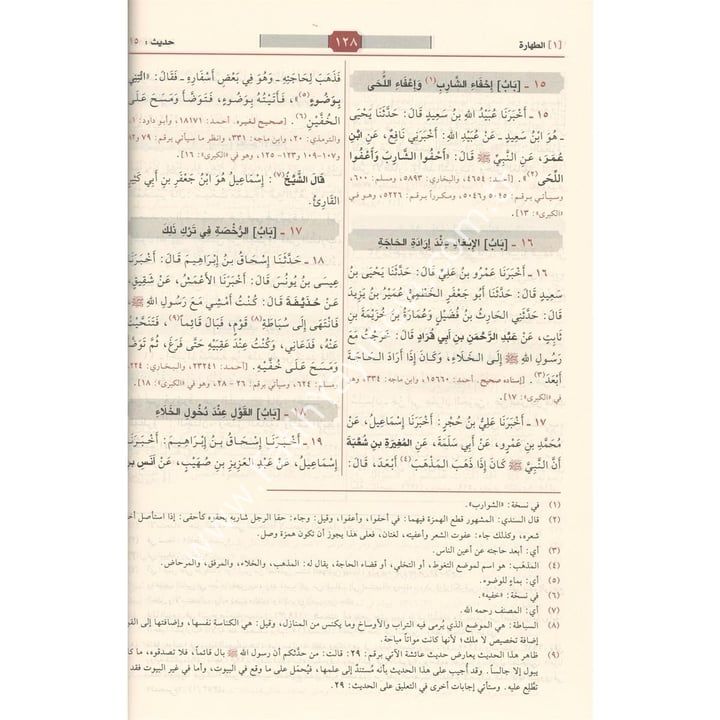 [١] الطهارة
١٢٨
حديث: ١٥
١٥ ـ [بَابُ] إحْفَاءِ الشَّارِبِ(١) وَإعْفَاءِ اللِّحَى
١٥ ـ أَخْبَرَنَا عُبَيْدُ اللهِ بنُ سَعِيدٍ قَالَ: حَدَّثَنَا يَحْيَى
ـ هوَ ابْنُ سعِيدٍ ـ عَنْ عُبَيْدِ اللهِ: أَخْبَرَنِي نَافِعٌ، عَنِ ابْنِ
عُمَرَ، عَنِ النَّبِيِّ ﷺ قَالَ: «أَحْفُوا الشَّارِبَ وَأَعْفُوا
اللِّحَى»(٢). [أحمد: ٤٦٥٤، والبخاري: ٥٨٩٣، ومسلم: ٦٠٠،
وسيأتي برقم: ٥٠٤٥ و٥٠٤٦، ومكرراً برقم: ٥٢٢٦، وهو في
«الكبرى»: ١٣].
١٦ ـ [بَابُ] الإِبْعَادِ عِنْدَ إِرَادَةِ الحَاجَةِ
١٦ ـ أَخْبَرَنَا عَمْرُو بنُ عَلِيٍّ قَالَ: حَدَّثَنَا يَحْيَى بنُ
سَعِيدٍ قَالَ: حَدَّثَنَا أَبُو جَعْفَرٍ الخَطْمِيُّ عُمَيْرُ بنُ يَزِيدَ
قَالَ: حَدَّثَنِي الحَارِثُ بنُ فُضَيْلٍ وَعُمَارَةُ بنُ خُزَيْمَةَ بنِ
ثَابِتٍ، عَنْ عَبْدِ الرَّحْمَنِ بنِ أَبِي قُرَادٍ قَالَ: خَرَجْتُ مَعَ
رَسُولِ اللهِ ﷺ إِلَى الخَلَاءِ، وَكَانَ إِذَا أَرَادَ الحَاجَةَ
أَبْعَدَ(٣). [إسناده صحيح. أحمد: ١٥٦٦٠، وابن ماجه: ٣٣٤، وهو
في «الكبرى»: ١٧].
١٧ ـ أَخْبَرَنَا عَلِيُّ بنُ حُجْرٍ: أَخْبَرَنَا إِسْمَاعِيلُ، عَنْ
مُحَمَّدِ بنِ عَمْرٍو، عَنْ أَبِي سَلَمَةَ، عَنِ المُغِيرَةِ بنِ شُعْبَةَ
أَنَّ النَّبِيَّ ﷺ كَانَ إِذَا ذَهَبَ المَذْهَبَ(٤) أَبْعَدَ، قَالَ:
فَذَهَبَ لِحَاجَتِهِ ـ وَهُوَ فِي بَعْضِ أَسْفَارِهِ ـ فَقَالَ: «ائْتِنِي
بِوَضُوءٍ(٥)»، فَأَتَيْتُهُ بِوَضُوءٍ، فَتَوَضَّأَ وَمَسَحَ عَلَى
الخُفَّيْنِ(٦). [صحيح لغيره. أحمد: ١٨١٧١، وأبو داود: ١،
والترمذي: ٢٠، وابن ماجه: ٣٣١، وانظر ما سيأتي برقم: ٧٩ و٨٢
و١٠٧-١٠٩ و١٢٣-١٢٥، وهو في «الكبرى»: ١٦].
قَالَ الشَّيْخُ(٧): إِسْمَاعِيلُ هُوَ ابْنُ جَعْفَرِ بنِ أَبِي كَثِيرٍ
القَارِئُ.
١٧ ـ [بَابُ] الرُّخْصَةِ فِي تَرْكِ ذَلِكَ
١٨ ـ حَدَّثَنَا إِسْحَاقُ بنُ إِبْرَاهِيمَ قَالَ: أَخْبَرَنَا
عِيسَى بنُ يُونُسَ قَالَ: أَخْبَرَنَا الأَعْمَشُ، عَنْ شَقِيقٍ،
عَنْ حُذَيْفَةَ قَالَ: كُنْتُ أَمْشِي مَعَ رَسُولِ اللهِ ﷺ،
فَانْتَهَى إِلَى سُبَاطَةِ(٨) قَوْمٍ، فَبَالَ قَائِماً(٩)، فَتَنَحَّيْتُ
عَنْهُ، فَدَعَانِي، وَكُنْتُ عِنْدَ عَقِبَيْهِ حَتَّى فَرَغَ، ثُمَّ تَوَضَّأَ
وَمَسَحَ عَلَى خُفَّيْهِ. [أحمد: ٢٣٢٤١، والبخاري: ٢٢٤،
ومسلم: ٦٢٤، وسيأتي برقم: ٢٦ - ٢٨، وهو في «الكبرى»: ١٨].
١٨ ـ [بَابُ] القَوْلِ عِنْدَ دُخُولِ الخَلَاءِ
١٩ ـ أَخْبَرَنَا إِسْحَاقُ بنُ إِبْرَاهِيمَ: أَخْبَرَنَا
إِسْمَاعِيلُ، عَنْ عَبْدِ العَزِيزِ بنِ صُهَيْبٍ، عَنْ أَنَسِ بنِ
(١) في نسخة: «الشوارب».
(٢) قال السندي: المشهور قطع الهمزة فيهما: في أحفوا، وأعفوا، وقيل: وجاء: حفا الرجل شاربه يحفوه كأحفى: إذا استأصل أخذ
شعره، وكذلك جاء: عفوت الشعر وأعفيته، لغتان، فعلى هذا يجوز أن تكون همزة وصل.
(٣) أي: أبعد حاجته عن أعين الناس.
(٤) المذهب: هو اسم لموضع التغوط، أو التخلي، أو قضاء الحاجة، يقال له: المذهب، والخلاء، والمرفق، والمرحاض.
(٥) أي: بماءٍ للوضوء.
(٦) في نسخة: «خفيه».
(٧) أي: المصنف رحمه الله.
(٨) السباطة: هي الموضع الذي يُرمى فيه التراب والأوساخ وما يكنس من المنازل، وقيل: هي الكناسة نفسها، وإضافتها إلى القوم
إضافة تخصيص لا ملك؛ لأنها كانت مواتاً مباحة.
(٩) ظاهر هذا الحديث يعارض حديث عائشة الآتي برقم: ٢٩: قالت: من حدَّثكم أن رسول الله ﷺ بال قائماً، فلا تصدقوه، ما كان
يبول إلا جالساً. وقد أُجيب على هذا الحديث بأنه مُستند إلى علمها، فيُحمل على ما وقع في البيوت، وأما في غير البيوت فقد
تطَّلع عليه. وستأتي إجابات أخرى في التعليق على الحديث: ٢٩.